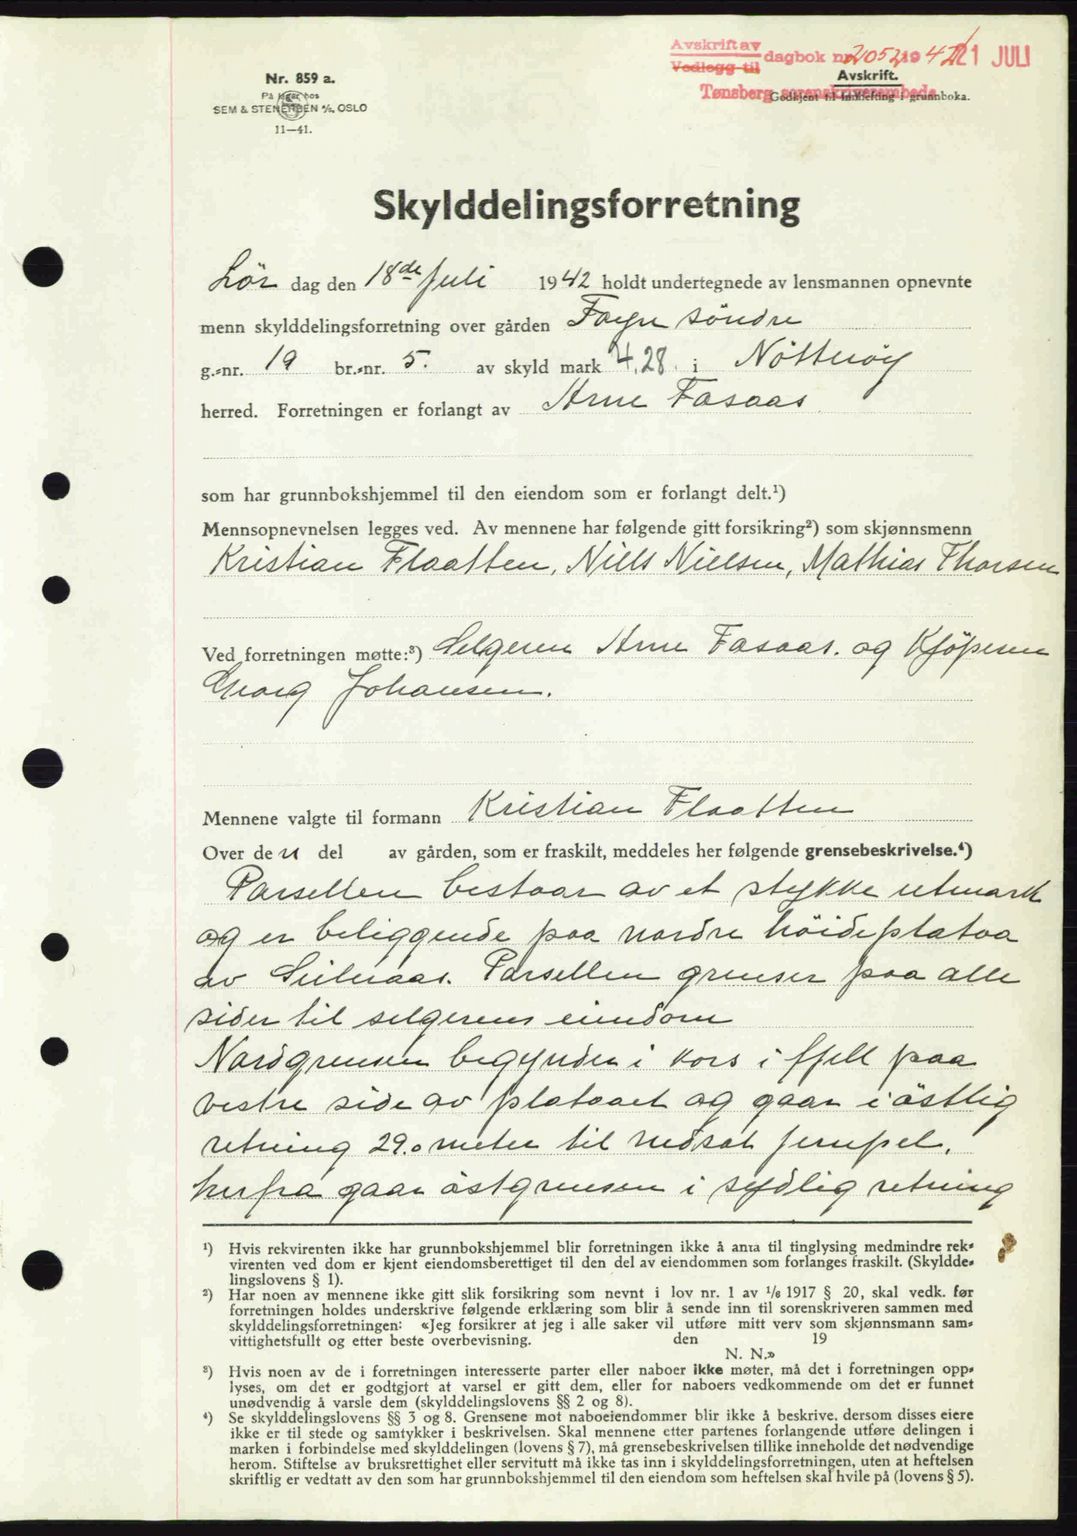 Avskrift av
Vedlegg til
dagbok nr. 2052 1942 21 JULI
Tønsberg sorenskriverembede
Nr. 859 a.
På lager hos
SEM & STENERSEN A/S, OSLO
11—41.
Avskrift.
Godkjent til innhefting i grunnboka.
Skylddelingsforretning
Lör dag den 18de Juli 1942 holdt undertegnede av lensmannen opnevnte
menn skylddelingsforretning over gården Föyn söndre
g.-nr. 19 br.-nr. 5. av skyld mark 4,28. i Nötteröy
herred. Forretningen er forlangt av Arne Fasaas
som har grunnbokshjemmel til den eiendom som er forlangt delt.¹)
Mennsopnevnelsen legges ved. Av mennene har følgende gitt forsikring²) som skjønnsmenn
Kristian Flaatten, Niels Nielsen, Mathias Thorsen
Ved forretningen møtte:³) Selgeren Arne Fasaas. og Kjöperen
Georg Johansen.
Mennene valgte til formann Kristian Flaatten
Over den del av gården, som er fraskilt, meddeles her følgende grensebeskrivelse.⁴)
Parsellen bestaar av et stykke utmark
og er beliggende paa nordre höideplataa
av . Parsellen grenser paa alle
sider til selgerens eiendom
Nordgrensen begynder i kors i fjell paa
vestre side av platoaet og gaar i östlig
retning 29.0 meter til nedsat jernpel,
herfra gaar östgrensen i sydlig retning
¹) Hvis rekvirenten ikke har grunnbokshjemmel blir forretningen ikke å anta til tinglysing medmindre rek-
virenten ved dom er kjent eiendomsberettiget til den del av eiendommen som forlanges fraskilt. (Skyldde-
lingslovens § 1).
²) Har noen av mennene ikke gitt slik forsikring som nevnt i lov nr. 1 av ¹/₆ 1917 § 20, skal vedk. før
forretningen holdes underskrive følgende erklæring som blir å sende inn til sorenskriveren sammen med
skylddelingsforretningen: «Jeg forsikrer at jeg i alle saker vil utføre mitt verv som skjønnsmann sam-
vittighetsfullt og etter beste overbevisning. den 19
N. N.»
³) Hvis noen av de i forretningen interesserte parter eller naboer ikke møter, må det i forretningen opp-
lyses, om det er godtgjort at varsel er gitt dem, eller for naboers vedkommende om det er funnet
unødvendig å varsle dem (skylddelingslovens §§ 2 og 8).
⁴) Se skylddelingslovens §§ 3 og 8. Grensene mot naboeiendommer blir ikke å beskrive, dersom disses eiere
ikke er til stede og samtykker i beskrivelsen. Skal mennene etter partenes forlangende utføre delingen i
marken i forbindelse med skylddelingen (lovens § 7), må grensebeskrivelsen tillike inneholde det nødvendige
herom. Stiftelse av bruksrettighet eller servitutt må ikke tas inn i skylddelingsforretningen, uten at heftelsen
skriftlig er vedtatt av den som har grunnbokshjemmel til den eiendom som heftelsen skal hvile på (lovens § 5).